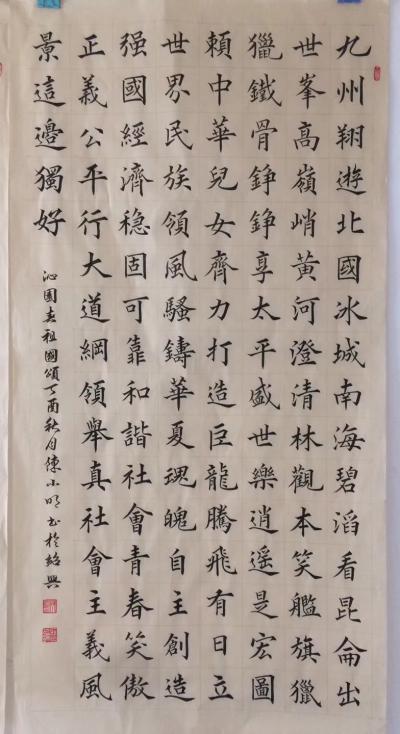 九州翔遊北國冰城南海碧滔看昆侖出
世峯高嶺峭黃河澄清林觀本笑艦旗獵
獵鐵骨錚錚享太平盛世樂逍遥是宏圖
賴中華兒女齊力打造巨龍騰飛有日立
世界民族領風騷鑄華夏瑰魄自主創造
强國經濟稳固可靠和諧社會青春笑傲
正義公平行大道綱領舉真社會主義風
景這邊獨好
沁園春祖國頌丁酉秋月陳小明书於紹興